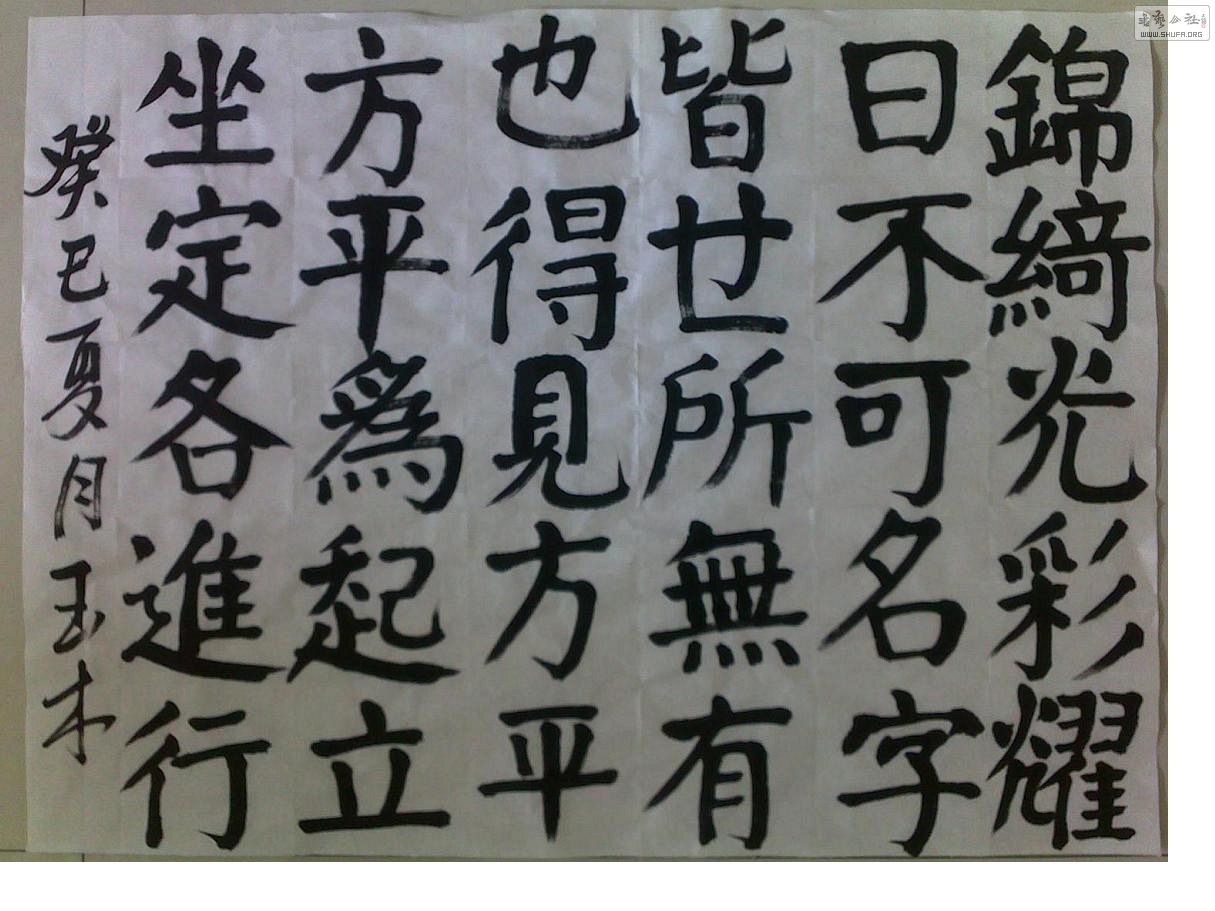 錦綺光彩耀
日不可名字
皆世所無有
也得見方平
方平為起立
坐定各進行
癸巳夏月玉木
WWW.SHUFA.ORG